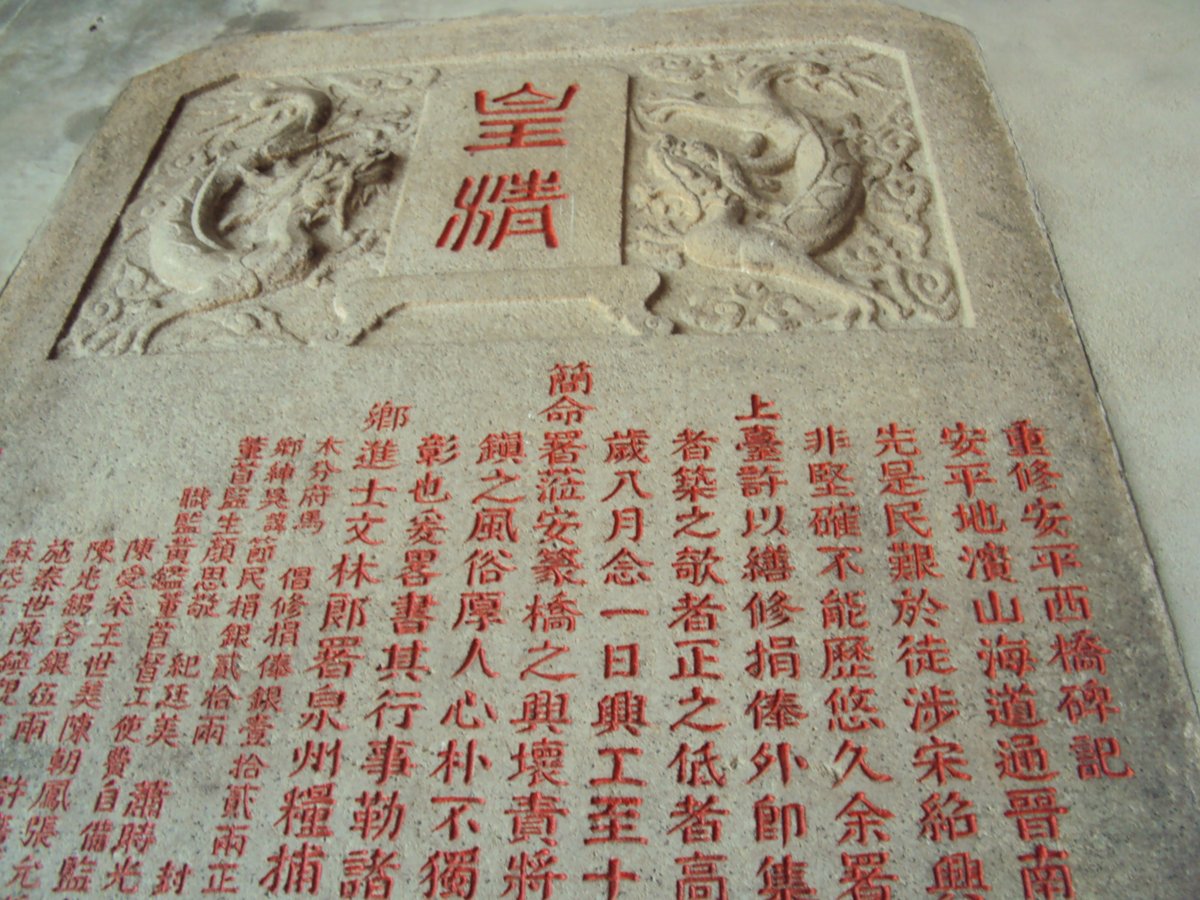 皇清
重修安平西橋碑記
安平地濱山海道通晉南
先是民艱於徒涉宋紹興
非堅確不能歷悠久余署
上臺許以繕修捐俸外卽集
者築之欹者正之低者高
歲八月念一日興工至十
簡命署蒞安篆橋之興壞責將
鎮之風俗厚人心朴不獨
彰也爰畧書其行事勒諸
鄉進士文林郎署泉州糧捕
木分府馬 倡修捐俸銀壹拾貳兩正
鄉紳 節民捐銀貳拾兩
董首監生顏思敬 紀廷美 封
職監黃 董首督工使費自備監
陳受采王世美陳朝鳳張允
陳光錫各銀伍兩
施秦世陳
蘇